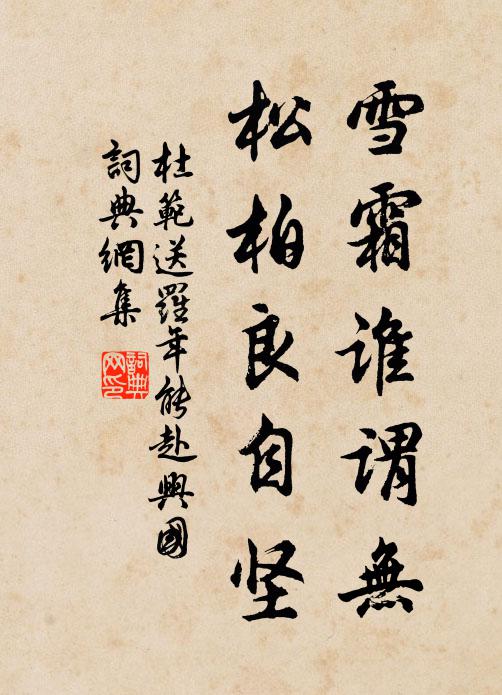 雪霜谁谓無
松柏良自坚
杜範送羅年能赴興國
詞典網集
詞典网印